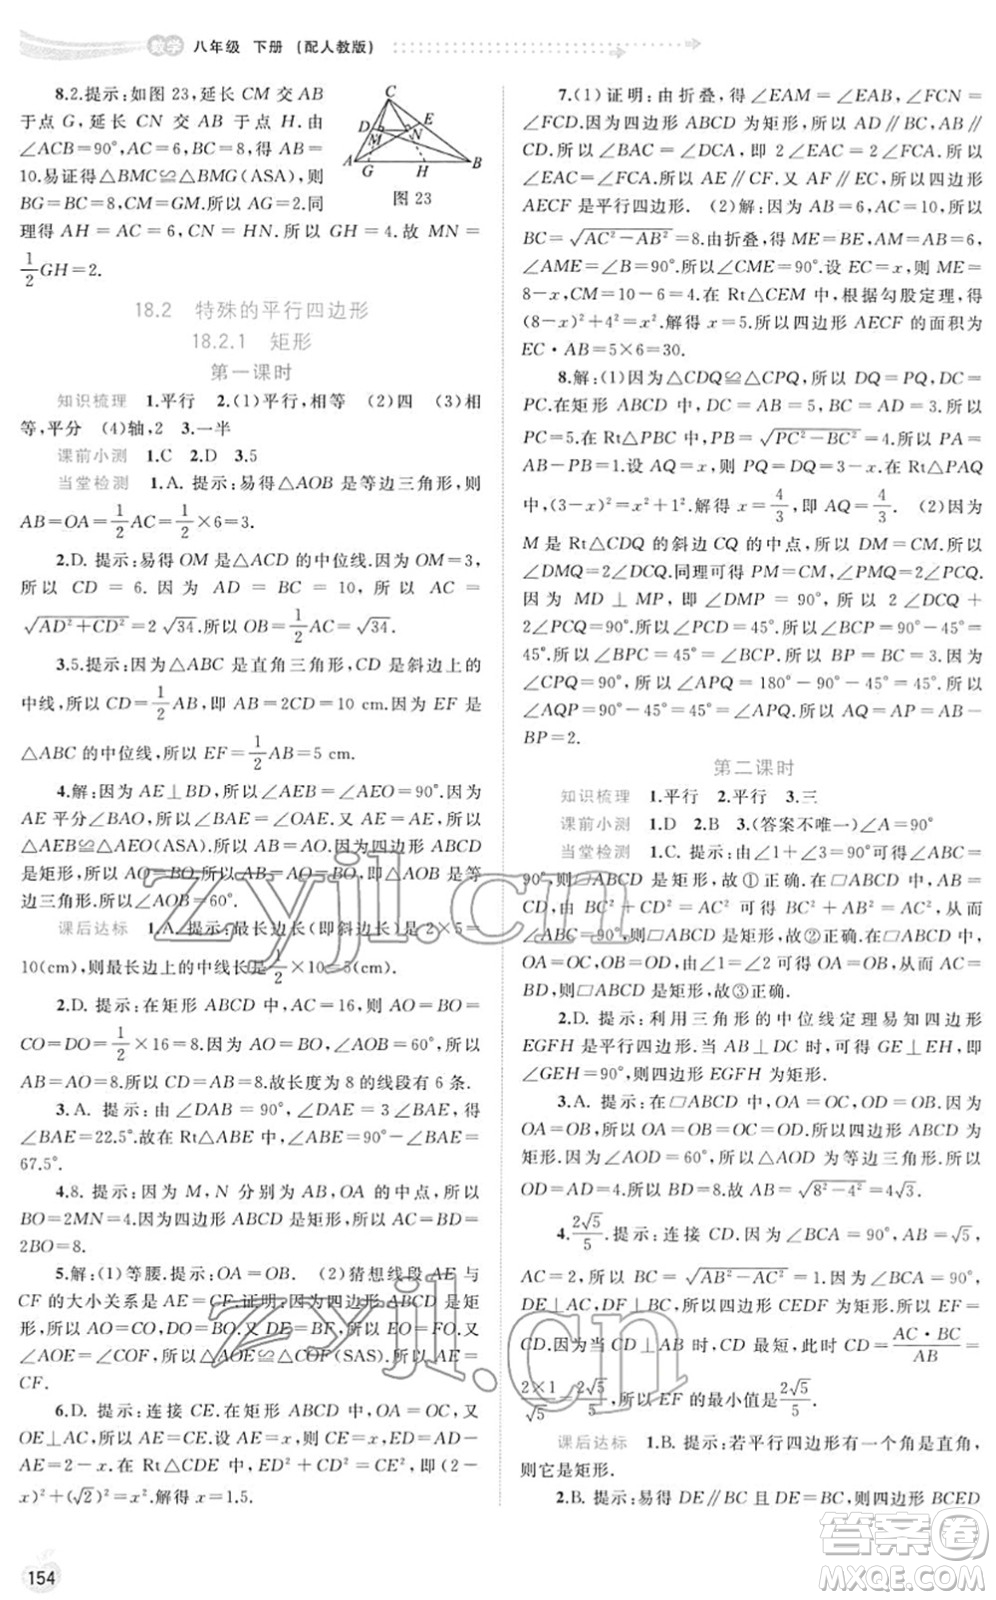 数学 八年级 下册 (配人教版)
8.2.提示:如图 23,延长 CM 交 AB
于点 G,延长 CN 交 AB 于点 H.由
∠ACB=90°,AC=6,BC=8,得 AB=
10.易证得△BMC≌△BMG(ASA),则
BG=BC=8,CM=GM.所以 AG=2.同
理得 AH=AC=6,CN=HN.所以 GH=4.故 MN=
1/2GH=2.
C
D
E
M
N
A
G
H
B
图 23
18.2 特殊的平行四边形
18.2.1 矩形
第一课时
知识梳理 1.平行 2.(1)平行,相等 (2)四 (3)相
等,平分 (4)轴,2 3.一半
课前小测 1.C 2.D 3.5
当堂检测 1.A. 提示:易得△AOB 是等边三角形,则
AB=OA=1/2AC=1/2×6=3.
2.D. 提示:易得 OM 是△ACD 的中位线.因为 OM=3,
所以 CD = 6. 因为 AD = BC = 10, 所以 AC =
√(AD²+CD²)=2√34.所以 OB=1/2AC=√34.
3.5.提示:因为△ABC 是直角三角形,CD 是斜边上的
中线,所以 CD=1/2AB,即 AB=2CD=10 cm.因为 EF 是
△ABC 的中位线,所以 EF=1/2AB=5 cm.
4.解:因为 AE⊥BD,所以∠AEB=∠AEO=90°.因为
AE 平分∠BAO,所以∠BAE=∠OAE.又 AE=AE,所以
△AEB≌△AEO(ASA).所以 AB=AO.因为四边形 ABCD
是矩形,所以 AO=BO.所以 AB=AO=BO.即△ABO 是等
边三角形.所以∠AOB=60°.
课后达标 1.A. 提示:最长边长(即斜边长)是 2×5=
10(cm),则最长边上的中线长是1/2×10=5(cm).
2.D. 提示:在矩形 ABCD 中,AC=16,则 AO=BO=
CO=DO=1/2×16=8.因为 AO=BO,∠AOB=60°,所以
AB=AO=8.所以 CD=AB=8.故长度为 8 的线段有 6 条.
3.A. 提示:由 ∠DAB = 90°,∠DAE = 3∠BAE,得
∠BAE=22.5°.故在 Rt△ABE 中,∠ABE=90°-∠BAE=
67.5°.
4.8. 提示:因为 M,N 分别为 AB,OA 的中点,所以
BO=2MN=4.因为四边形 ABCD 是矩形,所以 AC=BD=
2BO=8.
5.解:(1)等腰.提示:OA=OB. (2)猜想线段 AE 与
CF 的大小关系是 AE=CF.证明:因为四边形 ABCD 是矩
形,所以 AO=CO,DO=BO.又 DE=BF,所以 EO=FO.又
∠AOE=∠COF,所以△AOE≌△COF(SAS).所以 AE=
CF.
6.D. 提示:连接 CE.在矩形 ABCD 中,OA=OC,又
OE⊥AC,所以 AE=CE.设 AE=CE=x,则 DE=AD-
AE=2-x.在 Rt△CDE 中,CE²=DE²+CD²,即(2-
x)²+(√2)²=x².解得 x=1.5.
154
7.(1)证明:由折叠,得∠EAM=∠EAB,∠FCN=
∠FCD.因为四边形 ABCD 为矩形,所以 AD∥BC,AB∥
CD.所以∠BAC=∠DCA,即 2∠EAC=2∠FCA.所以
∠EAC=∠FCA.所以 AE∥CF.又 AF∥CE,所以四边形
AECF 是平行四边形. (2)解:因为 AB=6,AC=10,所以
BC=√(AC²-AB²)=8.由折叠,得 ME=BE,AM=AB=6,
∠AME=∠B=90°.所以∠CME=90°.设 EC=x,则 ME=
8-x,CM=10-6=4.在 Rt△CEM 中,根据勾股定理,得
(8-x)²+4²=x².解得 x=5.所以四边形 AECF 的面积为
EC·AB=5×6=30.
8.解:(1)因为△CDQ≌△CPQ,所以 DQ=PQ,CD=
PC.在矩形 ABCD 中,因为 AB=DC=5,AD=BC=3,所以
PC=5.在 Rt△PBC 中,PB=√(PC²-BC²)=4.所以 PA=
AB-PB=1.设 AQ=x,则 DQ=PQ=3-x.在 Rt△PAQ
中,(3-x)²=x²+1².解得 x=4/3,即 AQ=4/3. (2)因为
M 是 Rt△CDQ 的斜边 CQ 的中点,所以 DM=CM.所以
∠DMQ=2∠DCQ.同理可得 PM=CM,∠PMQ=2∠PCQ.
因为 MD ⊥ MP, 所以 ∠DMP = 90°. 所以 2∠DCQ +
2∠PCQ=90°.所以∠PCD=45°.所以∠BCP=90°-45°=
45°.所以∠BPC=45°=∠BCP.所以 BP=BC=3.因为
∠CPQ=90°,所以∠APQ=180°-90°-45°=45°.所以
∠AQP=90°-45°=45°=∠APQ.所以 AQ=AP=AB-
BP=2.
第二课时
知识梳理 1.平行 2.平行 3.三
课前小测 1.D 2.B 3.(答案不唯一)∠A=90°
当堂检测 1.C. 提示:由∠1+∠3=90°可得∠ABC=
90°,则□ABCD 是矩形,故①正确.在□ABCD 中,OA=
OC,因为 BC² + AB² = AC² 可得 ∠ABC = 90°,从而
∠ABC=90°,则□ABCD 是矩形,故②正确.在□ABCD 中,
OA=OC,OB=OD,由∠1=∠2可得 OA=OB,从而 OA=
OB=OC=OD,则□ABCD 是矩形,故③正确.
2.D. 提示:利用三角形的中位线定理易知四边形
EGFH 是平行四边形.当 AB⊥DC 时,可得 GE⊥EH,即
∠GEH=90°,则四边形 EGFH 为矩形.
3.A. 提示:在□ABCD 中,OA=OC,OD=OB.因为
OA=OB,所以 AC=BD=2OA=8.所以四边形 ABCD 为
矩形.因为∠AOD=60°,所以△AOD 为等边三角形.所以
OD=AD=4.所以 BD=8.故 AB=√(8²-4²)=4√3.
4.2√5/5.提示:连接 CD.因为∠BCA=90°,AB=√5,
AC=2,所以 BC=√(AB²-AC²)=1.因为∠BCA=90°,
DE⊥AC,DF⊥BC,所以四边形 CEDF 为矩形.所以 EF=
CD.因为当 CD⊥AB 时,CD 最短,此时 CD=AC·BC/AB=
2×1/√5=2√5/5.所以 EF 的最小值是2√5/5.
课后达标 1.B. 提示:若平行四边形有一个角是直角,
则它是矩形.
2.B. 提示:易得 DE∥BC 且 DE=BC,则四边形 BCED
zyjl.cn
zyjl.cn
答案圈
MXQE.COM